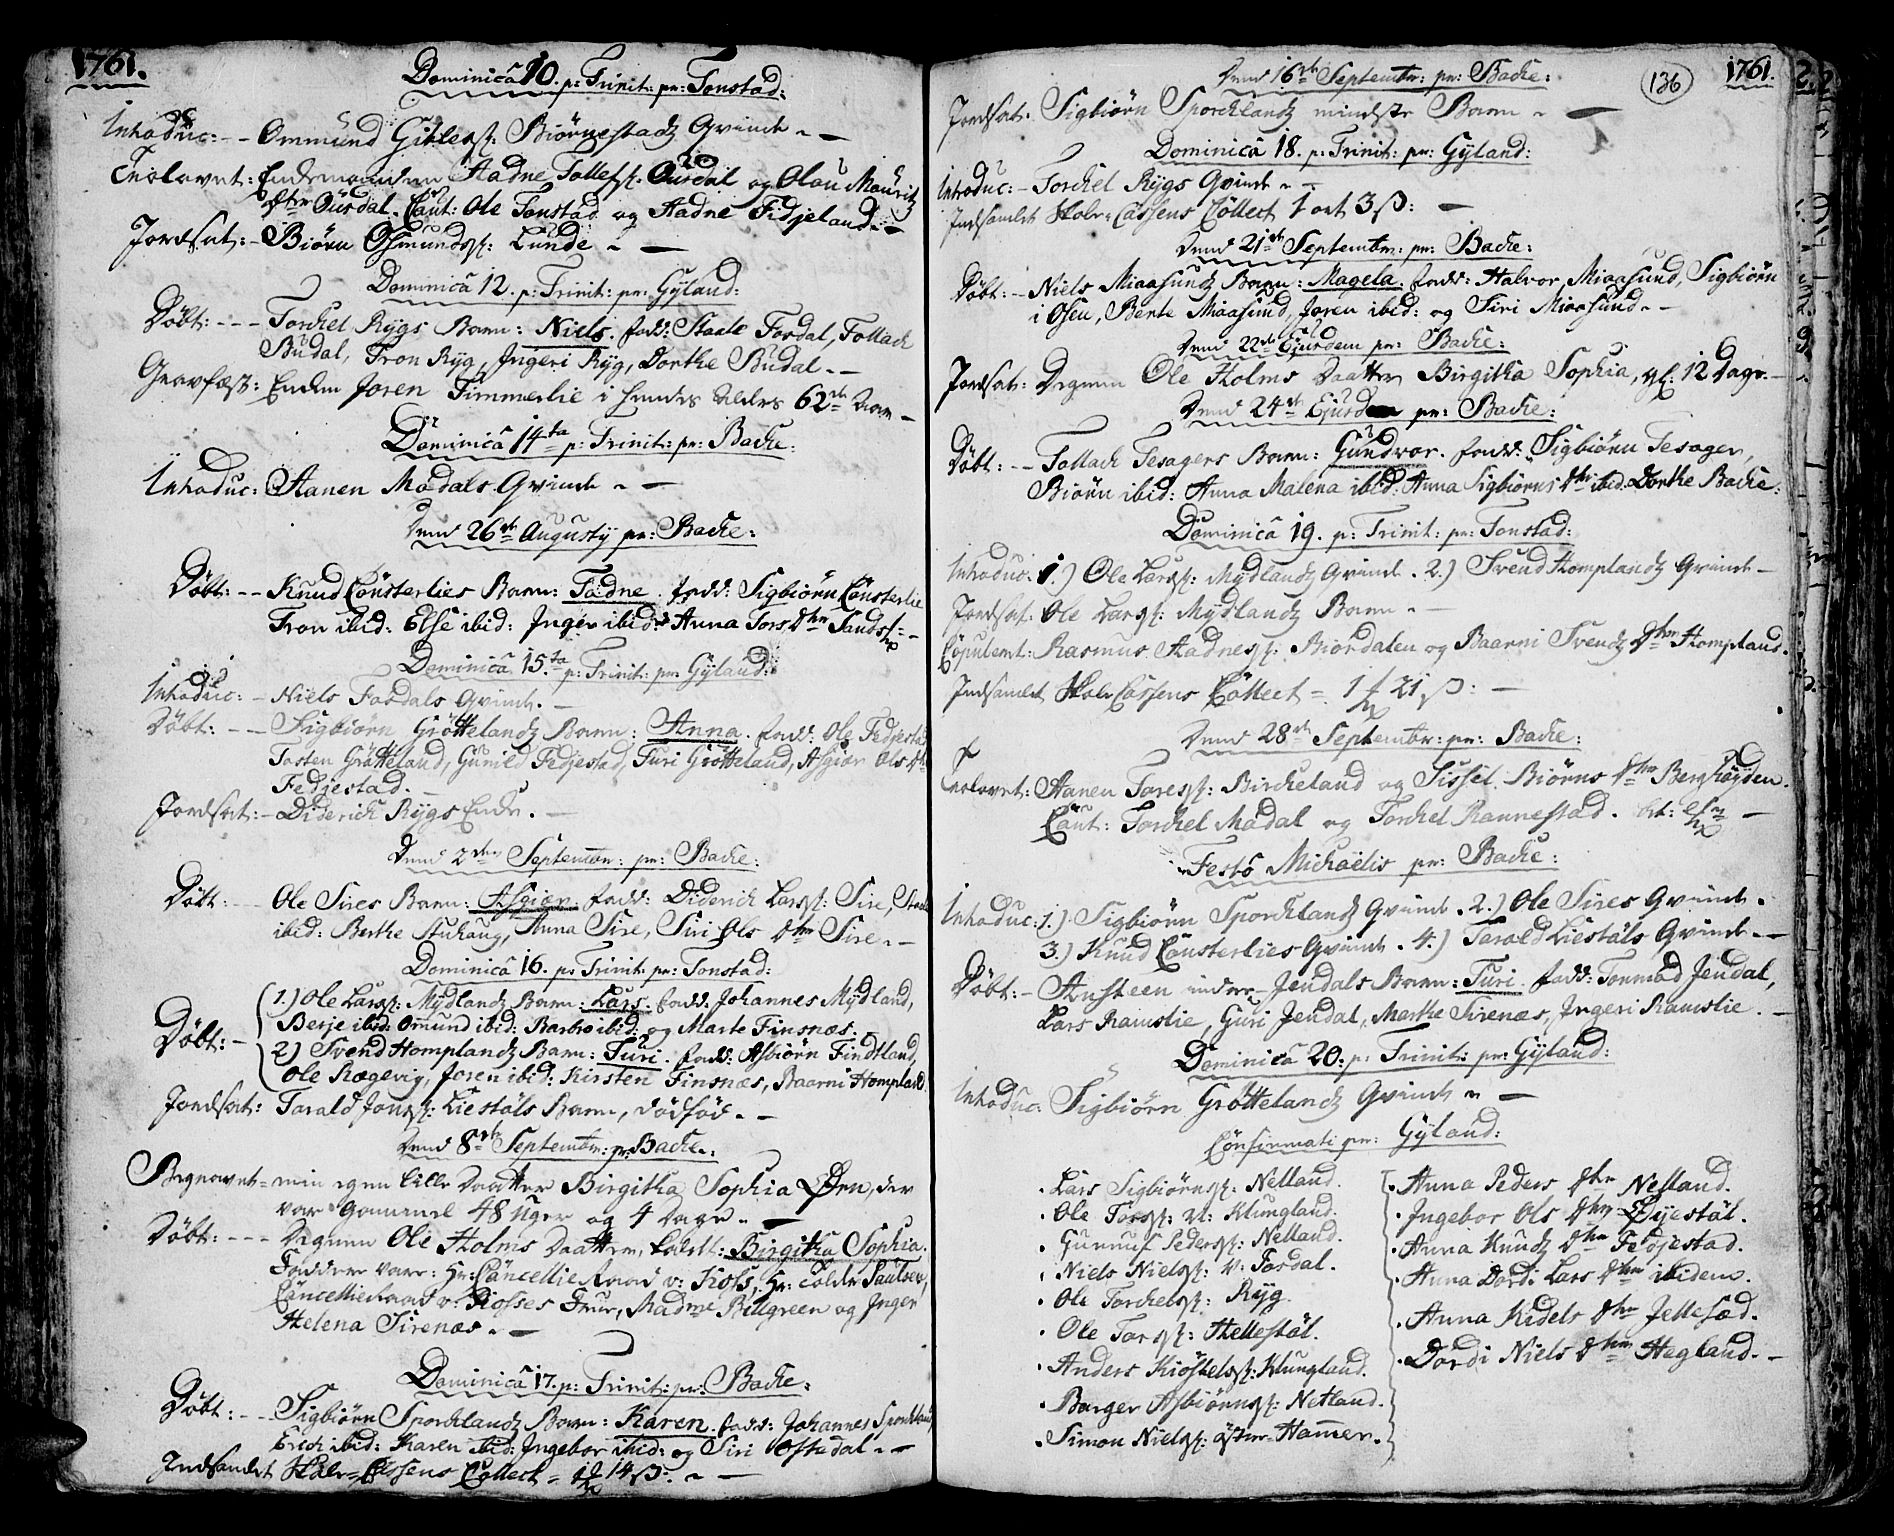 1761.
Dominica 10. p: Trinit: pr: Tonstad:
Introduc: -- Ommund Gitlessø: Biørnestadz Qvinde -
Troelovet: Endemanden Aadne Tollefsø: Ousdal og Olau Mauritz
Dtter Ousdal. Caut: Ole Tonstad og Aadne Fidjeland. -
Jordsat: - Biørn Osmundssø: Lunde -
Dominica 12. p: Trinit: pr: Gyland:
Døbt: --- Torchel Rygs Barn: Niels. fadd: Staale Fordal, Tollach
Budal, Tron Ryg, Jngeri Ryg, Dorthe Budal. -
Gravfæst: Enken Joren Timmerlie i hendes Alders 62de Aar -
Dominica 14ta p: Trinit: pr: Backe:
Introduc: Aanen Modals Qvinde -
Dend 26de Augustij pr: Backe:
Døbt: -- Knud Lönsterlies Barn: Tadne. fadd: Sigbiörn Lönsterlie
Tron ibid: Else ibid: Inger ibid: Anna Tors Dtter Sands
Dominica 15ta p: Trinit: pr: Gyland:
Introduc: - Niels Fasdals Qvinde. -
Døbt: -- Sigbiörn Gröttelandz Barn: Anna. fadd: Ole Fedjestad
Tosten Grötteland, Gunild Fedjestad, Turi Grötteland, Asgiær Ols Dtter
Fedjestad. -
Jordsat: - Diderich Rygs Enke. -
Dend 2den Septembr: pr: Backe:
Døbt: -- Ole Sires Barn: Asgiær. fadd: Diderich Larssø: Sire,
ibid: Berthe Stuhaug, Anna Sire, Siri Ols Dtter Sire. -
Dominica 16. p: Trinit: pr: Tonstad:
Døbt: - 1.) Ole Larssø: Mydlandz Barn: Lars. fadd: Johannes Mydland,
Berje ibid: Omund ibid: Barbro ibid: og Marte Finsnæs.
2) Svend Homplandz Barn: Turi. fadd: Asbiørn Findtland,
Ole Rægevig, Joren ibid: Kirsten Finsnæs, Baarni Hompland.
Jordsat: Tarald Jonssø: Liestøls Barn, dødfød. -
Dend 8de Septembr: pr: Backe:
Begravet = min egen lille Daatter Birgitha Sophia Øen, der
var gammel 48 Uger og 4 Dage. -
Døbt: --- Degnen Ole Holms Daatter, kaldt: Birgitha Sophia.
Faddere vare: Hr: Cancellie Raad v: Koss, Hr: Paulsen,
Cancellie Raad v: Kosses Frue, Madme Billgreen og Jnger
Helena Sirenæs. -
Dominica 17. p: Trinit: pr: Backe:
Døbt: -- Sigbiørn Sporchlandz Barn: Karen. fadd: Johannes Sporchland,
Erich ibid: Karen ibid: Jngebor ibid: og Siri Oftedal. -
Jndsamlet Skole-Cassens Collect = 14 ß: -
136
1761.
Dend 16de Septembr: pr: Backe:
Jordsat: Sigbiörn Sporchlandz mindste Barn -
Dominica 18. p: Trinit: pr: Gyland:
Introduc: - Torchel Rygs Qvinde -
Jndsamlet Skole-Cassens Collect 1 ort 3 ß: -
Dend 21de Septembr: pr: Backe:
Døbt: - Niels Miaasundz Barn: Magela. fadd: Halvor Miaasund, Sigbiörn
i Osen, Berte Miaasund, Joren ibid: og Siri Miaasund. -
Dend 22de Ejusdem pr: Backe:
Jordsat: Degnen Ole Holms Daatter Birgitha Sophia, gl: 12 Dage. -
Dend 24de Ejusdem pr: Backe:
Døbt: -- Tollach Tesagers Barn: Gundvor. fadd: Sigbiörn Tesager,
Biörn ibid: Anna Malena ibid: Anna Sigbiörns Dtter ibid: Dorthe Backe:
Dominica 19. p: Trinit: pr: Tonstad:
Introduc: 1.) Ole Larssø: Mydlandz Qvinde. 2.) Svend Homplandz Qvinde -
Jordsat: Ole Larssø: Mydlandz Barn. -
Copuleret: Rasmus Aadnessø: Biordalen og Baarni Svendz Dtter Hompland.
Jndsamlet Skole Cassens Collect = 1 21 ß: -
Dend 28de Septembr: pr: Backe:
Troelovet: Aanen Toressø: Birckeland og Sissel Biørns Dtter Berghøyden.
Caut: Torchel Madal og Torchel Rannestad.
Festo Michaëlis pr: Backe:
Introduc: 1.) Sigbiörn Sporchlandz Qvinde. 2.) Ole Sires Qvinde.
3.) Knud Lönsterlies Qvinde. 4.) Tarald Liestøls Qvinde. -
Døbt: - Austeen Jendals Barn: Turi. fadd: Tormod Jendal,
Lars Ramslie, Guri Jendal, Marthe Sirenæs, Jngeri Ramslie. -
Dominica 20. p: Trinit: pr: Gyland:
Introduc: Sigbiörn Gröttelandz Qvinde -
Confirmati pr: Gyland:
. Lars Sigbiörnssø: Netland.
. Ole Torssø: Klungland.
. Gunnuf Pederssø: Netland.
. Niels Nielssø: v: Fasdal.
. Ole Torchelssø: Ryg.
. Ole Torssø: Hellestöl.
. Anders Kiöstelssø: Klungland.
. Borger Asbiörnssø: Netland.
. Simon Nielssø: Hammer.
. Anna Peders Dtter Netland.
. Jngebor Ols Dtter Øyestöl.
. Anna Knudz Dtter Fedjestad.
. Anna Dordi Lars Dtter ibidem.
. Anna Kidels Dtter Jellesæd.
. Dordi Niels Dtter Hegland. -